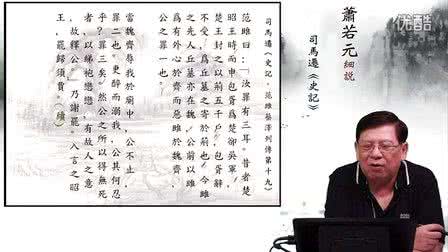 优酷
蕭若元 細說
司馬遷《史記》
司馬遷《史記．范雎蔡澤列傳第十九》
范雎曰：「汝罪有三耳。昔者楚
昭王時而申包胥為楚卻吳軍，
楚王封之以荊五千戶，包胥辭
不受，為丘墓之寄於荊也。今雎
之先人丘墓亦在魏，公前以雎
為有外心於齊而惡雎於魏齊，
公之罪一也。
當魏齊辱我於廁中，公不止，
罪二也。更醉而溺我，公其何忍
乎？罪三矣。然公之所以得無死
者，以綈袍戀戀，有故人之意
，故釋公。」乃謝罷。入言之昭
王，罷歸須賈。（續）